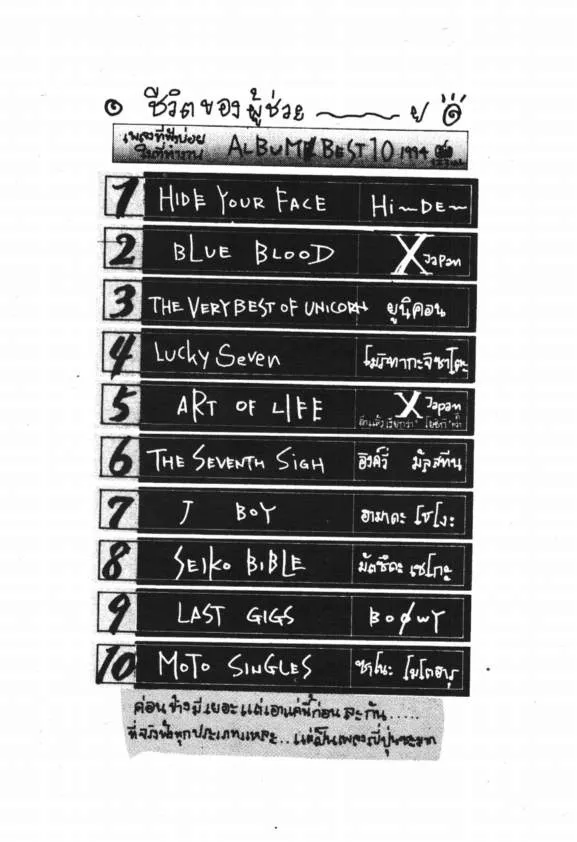 ชีวิตของผู้ช่วย
เพลงที่ฟังบ่อย
ในที่ทำงาน
ALBUM BEST 10 1994
1 HIDE YOUR FACE Hi~DE~
2 BLUE BLOOD X Japan
3 THE VERY BEST OF UNICORN ยูนิคอน
4 Lucky Seven โมริทากะจิซาโตะ
5 ART OF LIFE X Japan
6 THE SEVENTH SIGH อิงค์วี่ มัลสทีน
7 J BOY ฮามาดะ โชโงะ
8 SEIKO BIBLE มัตซึดะ เซโกะ
9 LAST GIGS BOØWY
10 MOTO SINGLES ซาโนะ โมโตฮารุ
ค่อนข้างมีเยอะแต่เอาแค่นี้ก่อนละกัน.....
ที่จริงฟังทุกประเภทแหละ..แต่เป็นเพลงญี่ปุ่นซะมาก